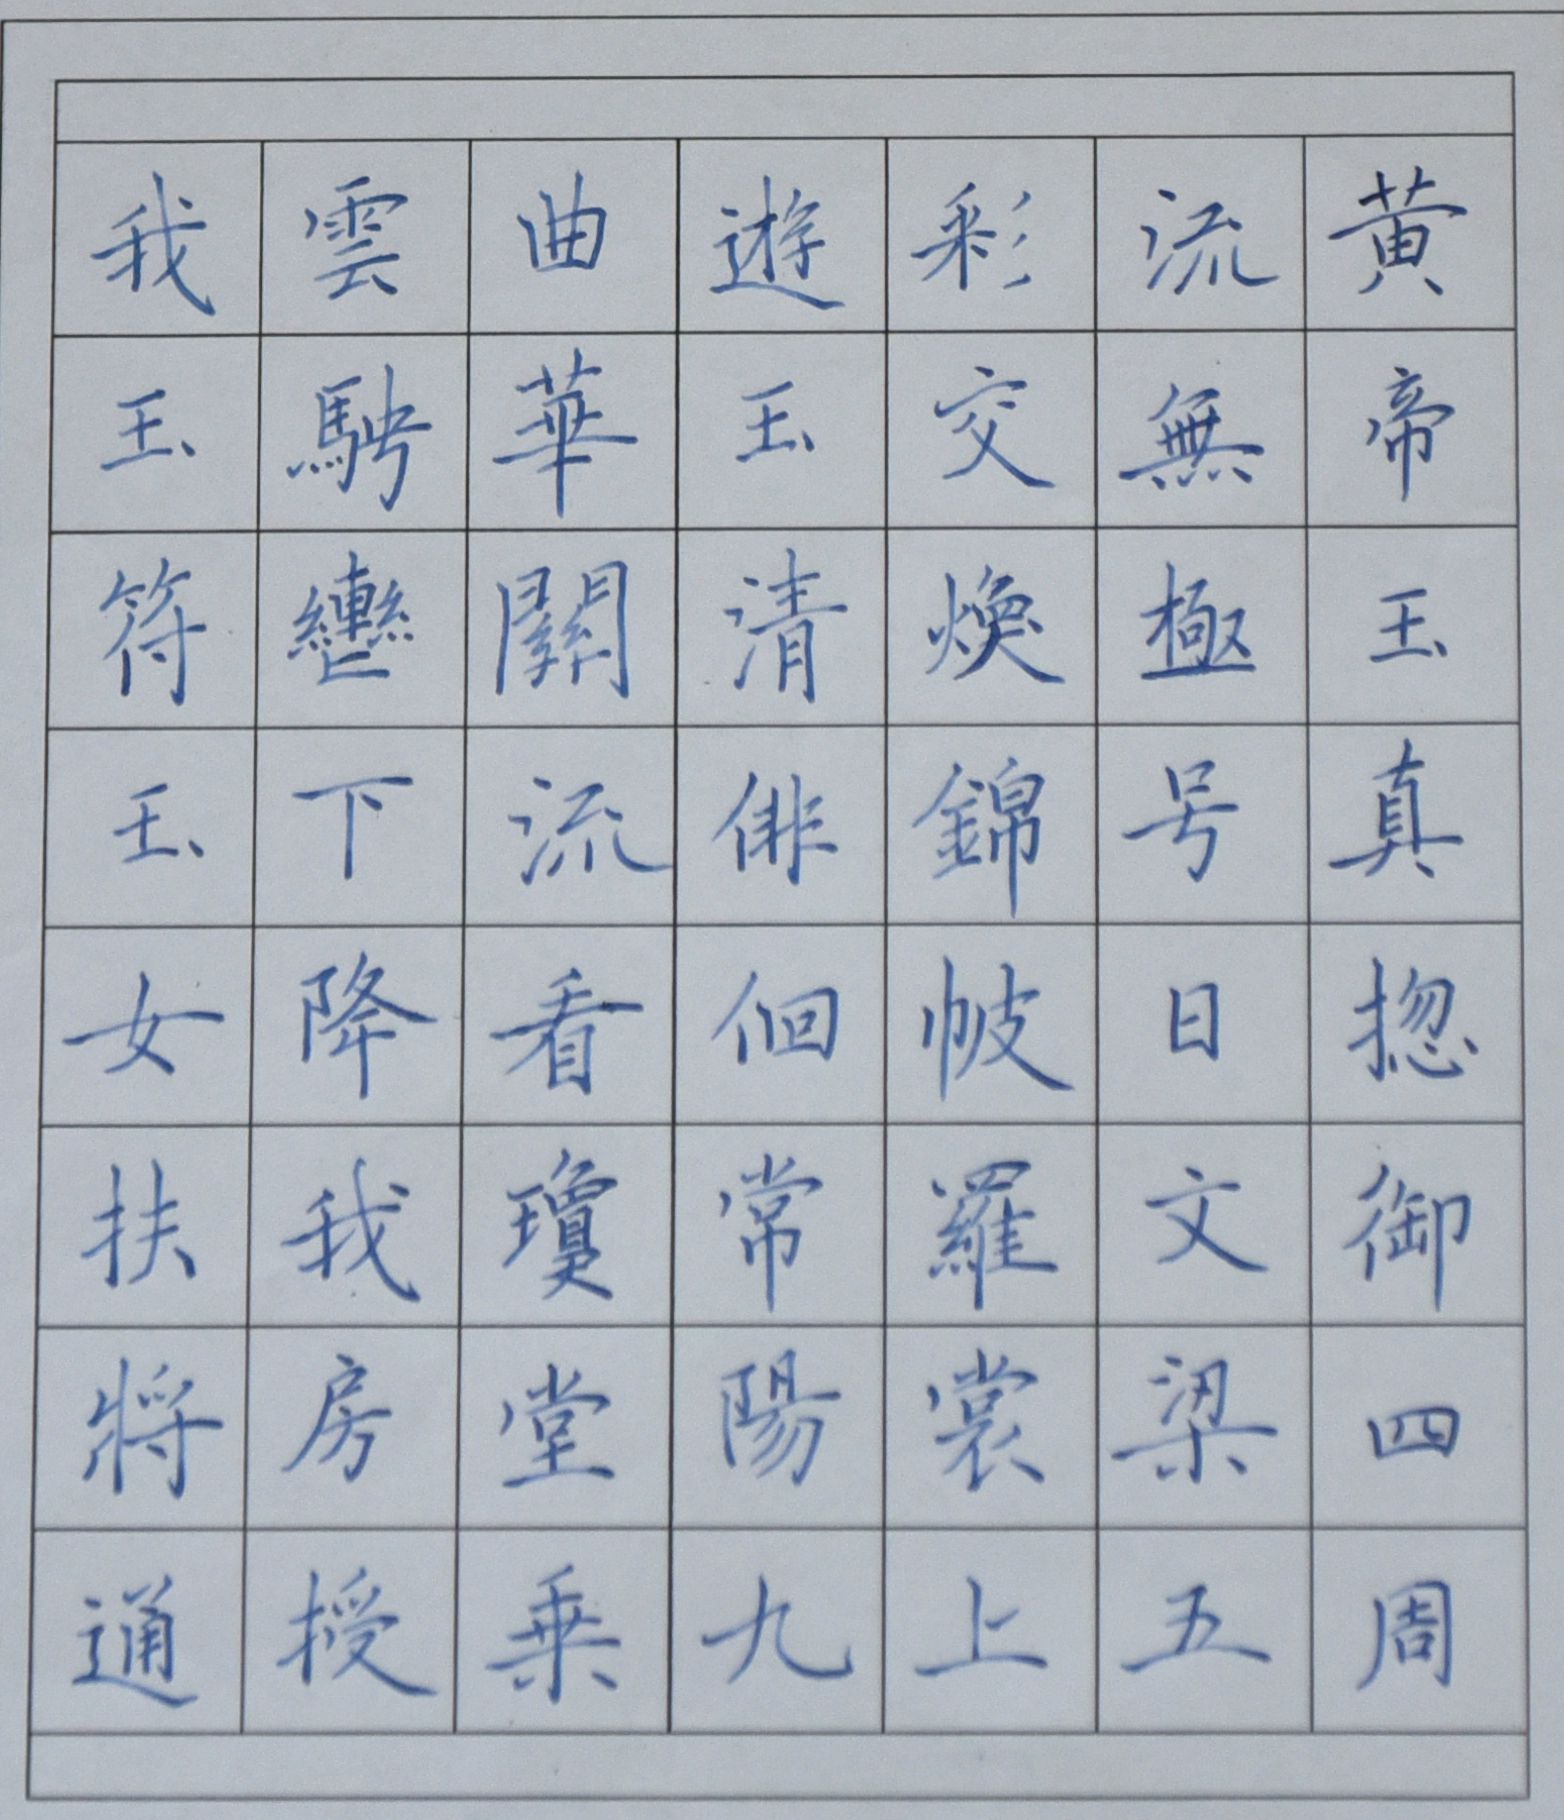 黄帝玉真揔御四周
流無極号日文梁五
彩交煥錦帔羅裳上
遊玉清俳佪常陽九
曲華關流看瓊堂乗
雲騁轡下降我房授
我玉符玉女扶將通